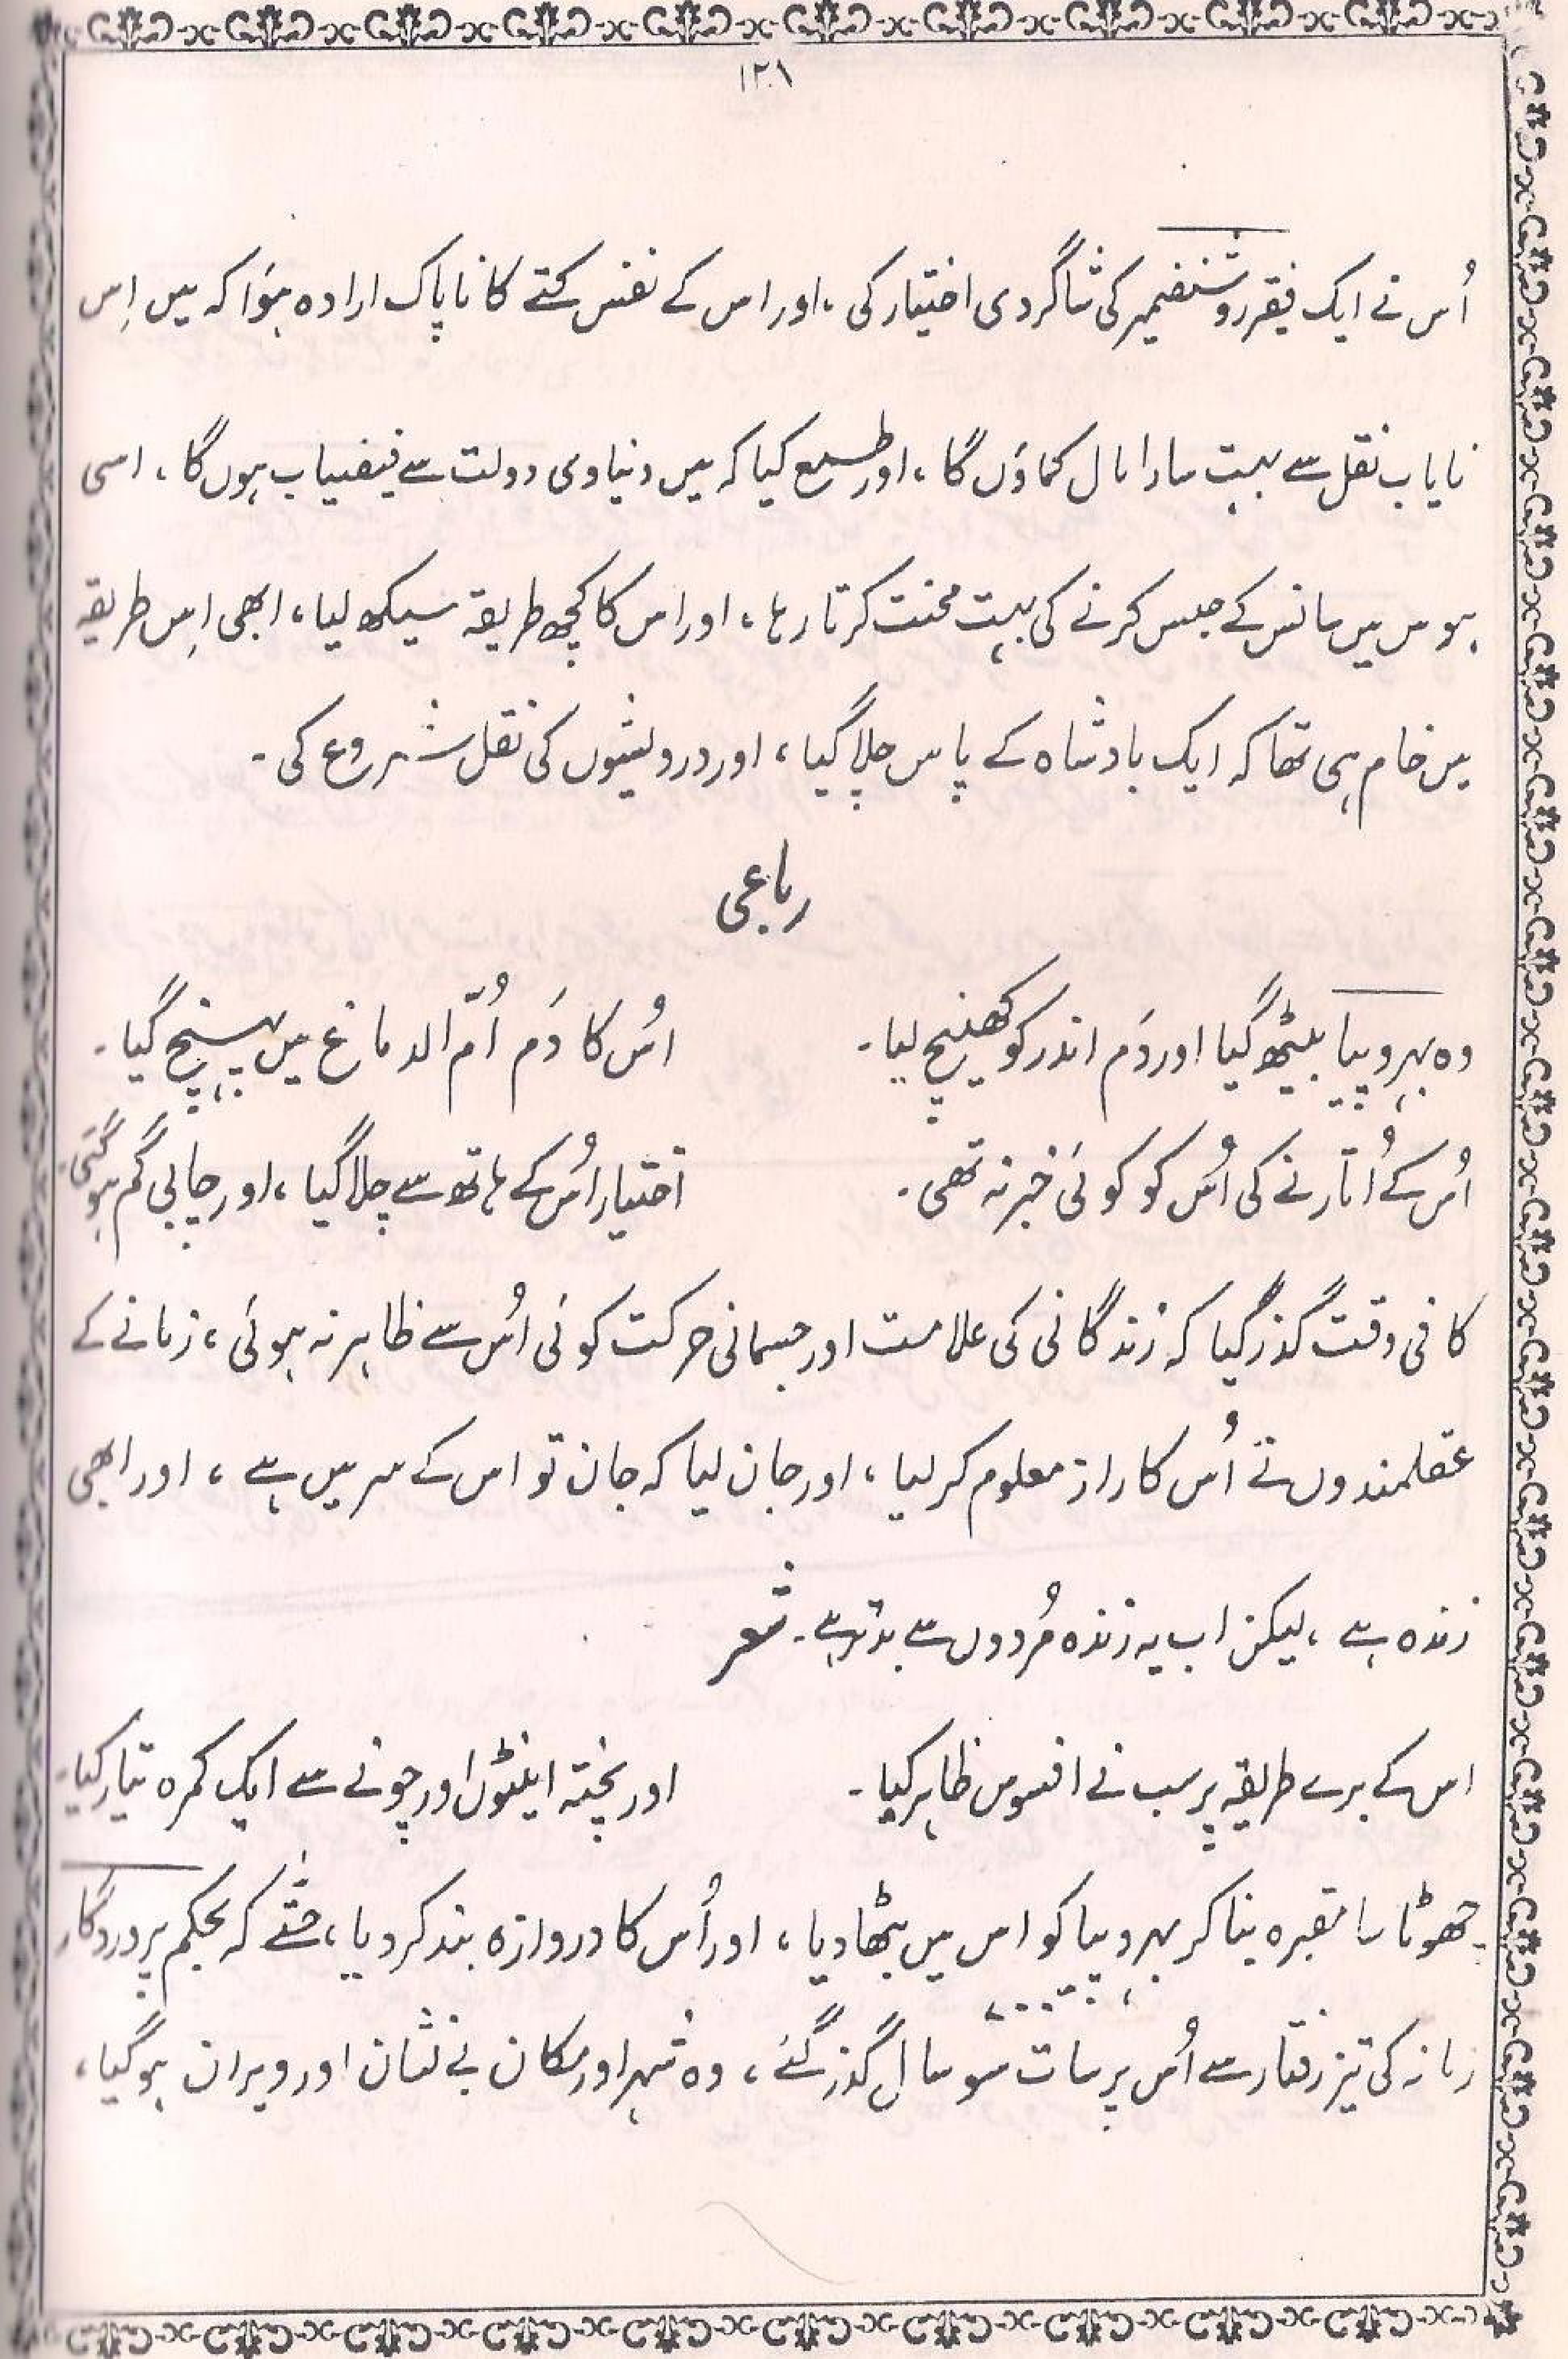 ۱۲۸
اُس نے ایک فقیر روشنضمیر کی شاگردی اختیار کی، اور اس کے نفس کتے کا ناپاک ارادہ ہوَا کہ میں اِس
نایاب نقل سے بہت سارا مال کماؤں گا، اور طمع کیا کہ میں دنیاوی دولت سے فیضیاب ہوں گا، اسی
ہوس میں سانس کے حبس کرنے کی بہت محنت کرتا رہا، اور اس کا کچھ طریقہ سیکھ لیا، ابھی اِس طریقہ
میں خام ہی تھا کہ ایک بادشاہ کے پاس چلا گیا، اور درویشوں کی نقل شروع کی۔
رباعی
وہ بہروپیا بیٹھ گیا اور دَم اندر کو کھینچ لیا۔ اُس کا دَم اُمّ الدماغ میں پہنچ گیا۔
اُس کے اُتارنے کی اُس کو کوئی خبر نہ تھی۔ اختیار اُس کے ہاتھ سے چلا گیا، اور چابی گم ہو گئی۔
کافی وقت گذر گیا کہ زندگانی کی علامت اور جسمانی حرکت کوئی اُس سے ظاہر نہ ہوئی، زمانے کے
عقلمندوں نے اُس کا راز معلوم کر لیا، اور جان لیا کہ جان تو اس کے سر میں ہے، اور ابھی
زندہ ہے، لیکن اب یہ زندہ مُردوں سے بدتر ہے۔ شعر
اس کے برے طریقہ پر سب نے افسوس ظاہر کیا۔ اور پختہ اینٹوں اور چونے سے ایک کمرہ تیار کیا۔
چھوٹا سا مقبرہ بنا کر بہروپیا کو اس میں بٹھا دیا، اور اُس کا دروازہ بند کر دیا، حتّٰے کہ بحکم پروردگار
زمانہ کی تیز رفتار سے اُس پر سات سو سال گذر گئے، وہ شہر اور مکان بے نشان اور ویران ہو گیا،